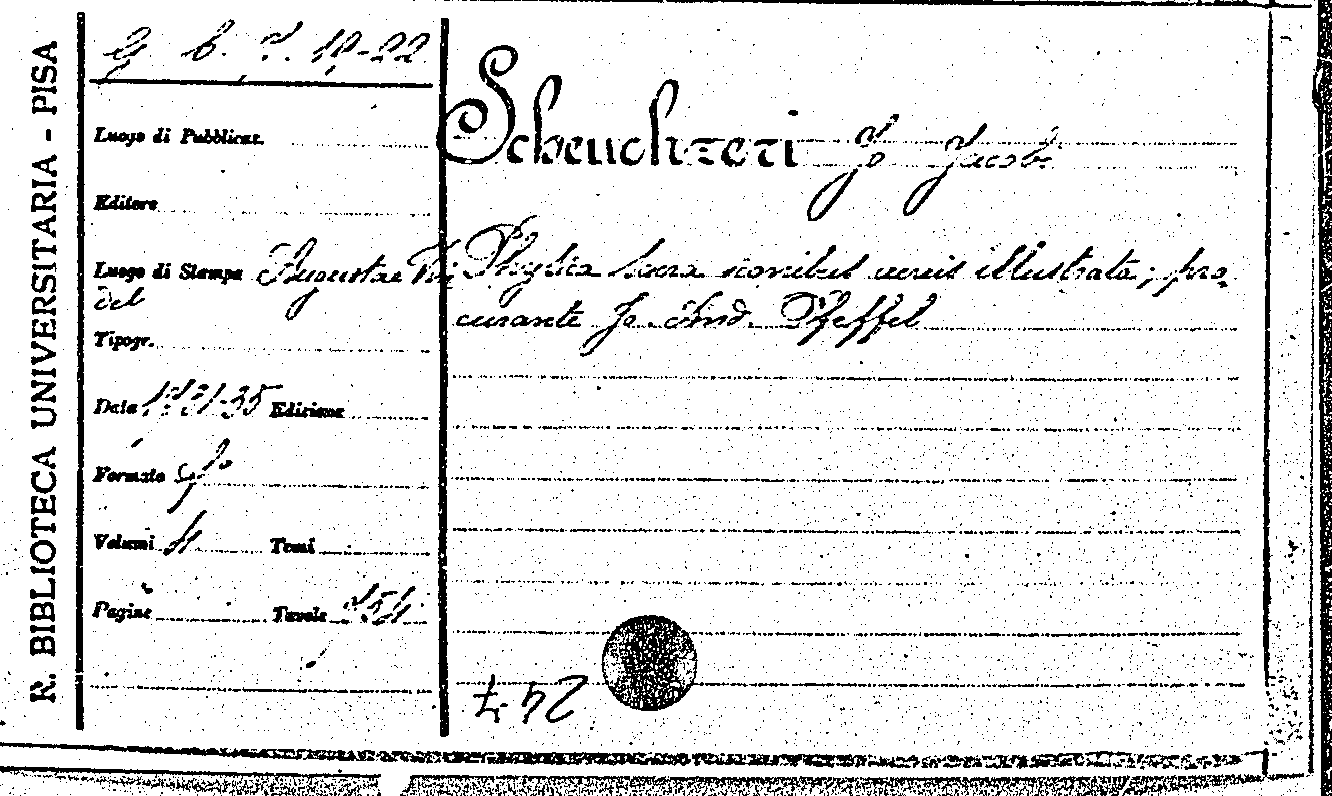 R. BIBLIOTECA UNIVERSITARIA - PISA
G b. 7. 19-22
Luogo di Pubblicaz.
Editore
Luogo di Stampa Augustae Vin
del
Tipogr.
Data 1731-35 Edizione
Formato fo
Volumi 4 Tomi
Pagine Tavole 754
Scheuchzeri Jo Jacobi
Physica sacra iconibus aeneis illustrata; pro-
curante Jo. And. Pfeffel